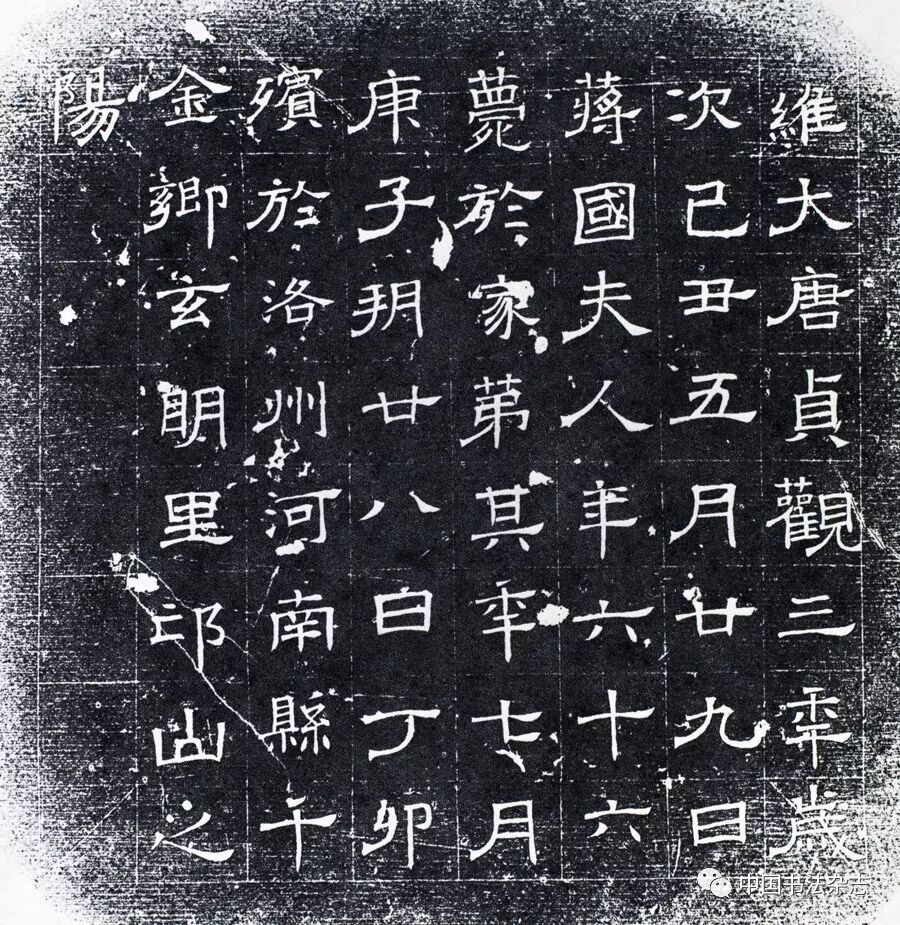 維大唐貞觀三年歲
次己丑五月廿九日
蔣國夫人年六十六
薨於家第其年七月
庚子朔廿八日丁卯
殯於洛州河南縣千
金鄉玄明里邙山之
陽
中国书法杂志